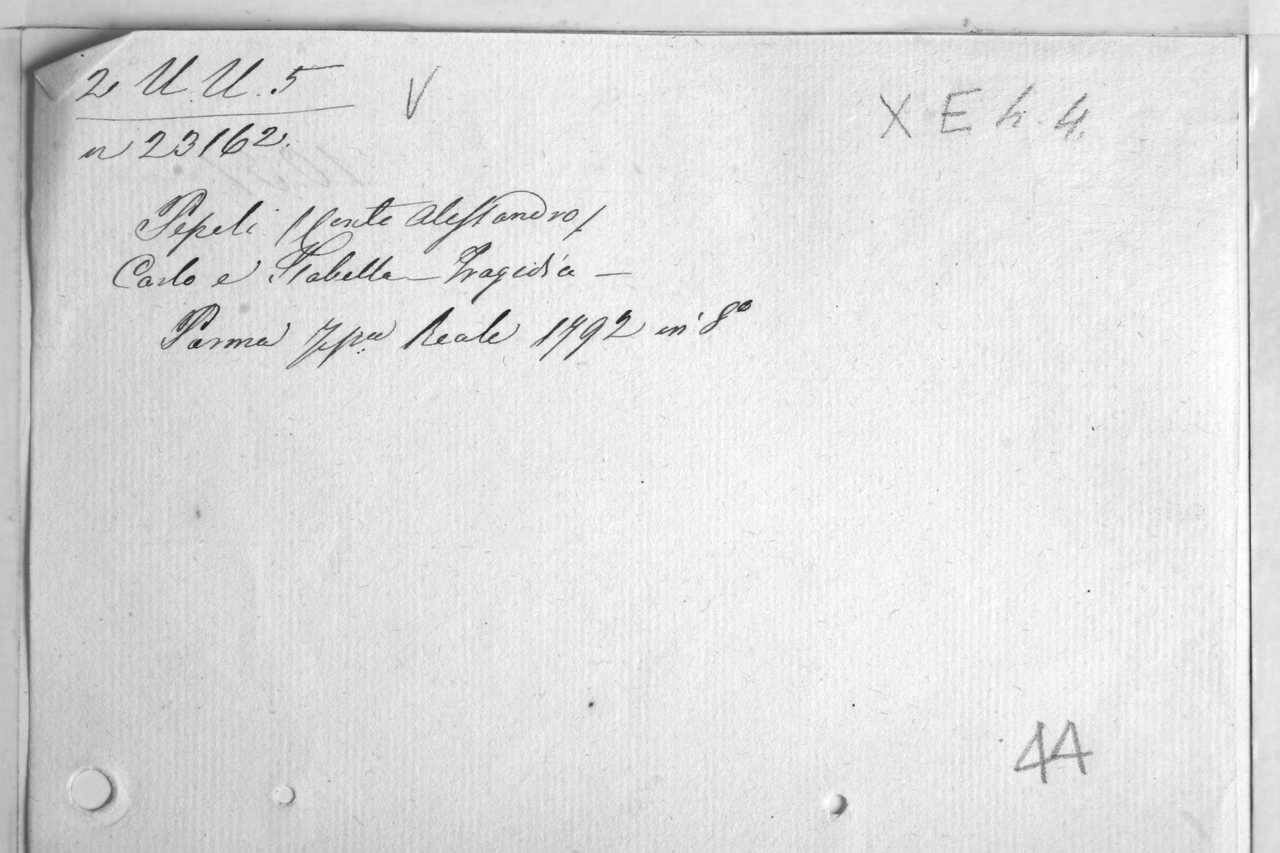 2 U. U. 5
V
X E h. 4.
n 23162.
Pepoli /Conte Alessandro/
Carlo e Isabella – Tragidia –
Parma Tipa. Reale 1792 in 8º
44